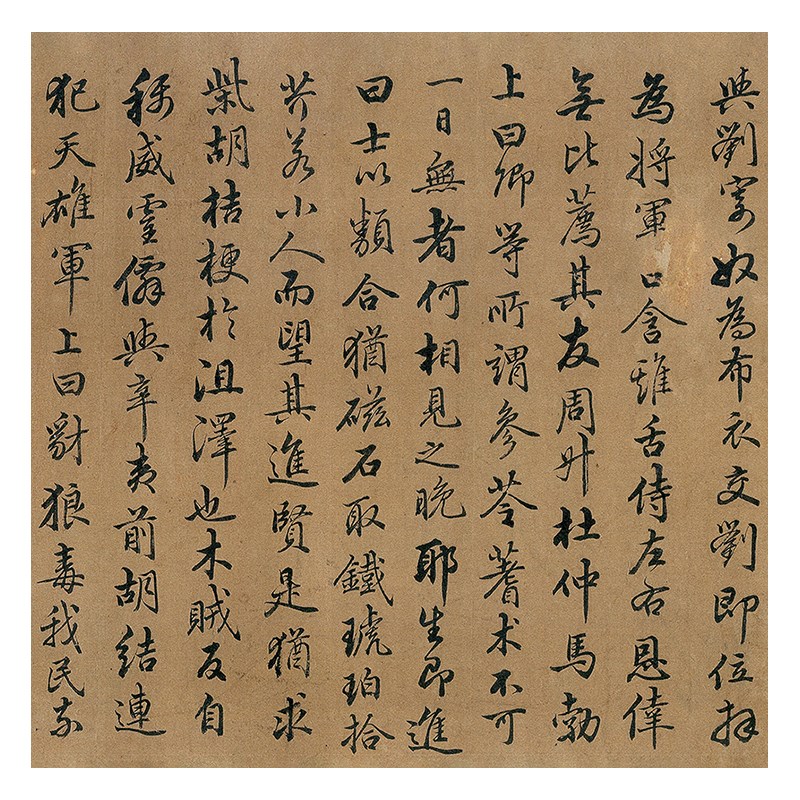 與劉寄奴為布衣交劉即位拜
為將軍口含雞舌侍左右恩偉
無比薦其友周升杜仲馬勃
上曰卿等所謂參苓蓍术不可
一日無者何相見之晚耶生即進
曰士以類合猶磁石取鐵琥珀拾
芥若小人而望其進賢是猶求
柴胡桔梗於沮澤也木賊反自
稱威靈僊與辛夷前胡結連
犯天雄軍上曰豺狼毒我民奈